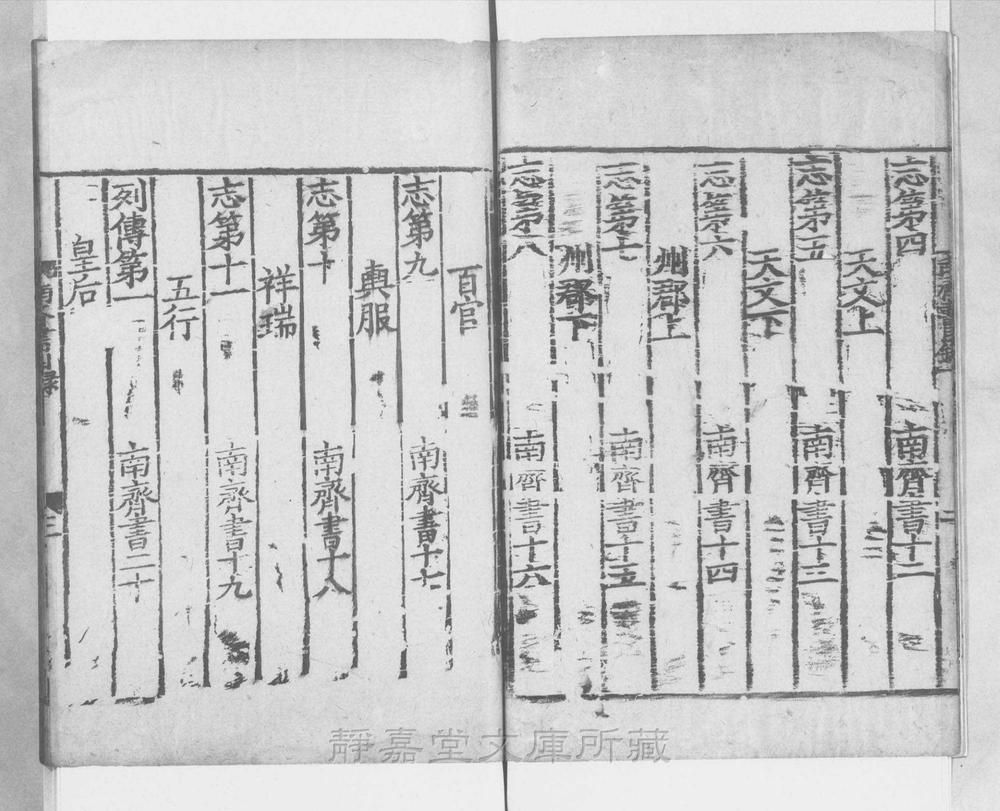 志第四　南齊書十二
天文上
志第五　南齊書十三
天文下
志第六　南齊書十四
州郡上
志第七　南齊書十五
州郡下
志第八　南齊書十六
百官
志第九　南齊書十七
輿服
志第十　南齊書十八
祥瑞
志第十一　南齊書十九
五行
列傳第一　南齊書二十
皇后
靜嘉堂文庫所藏